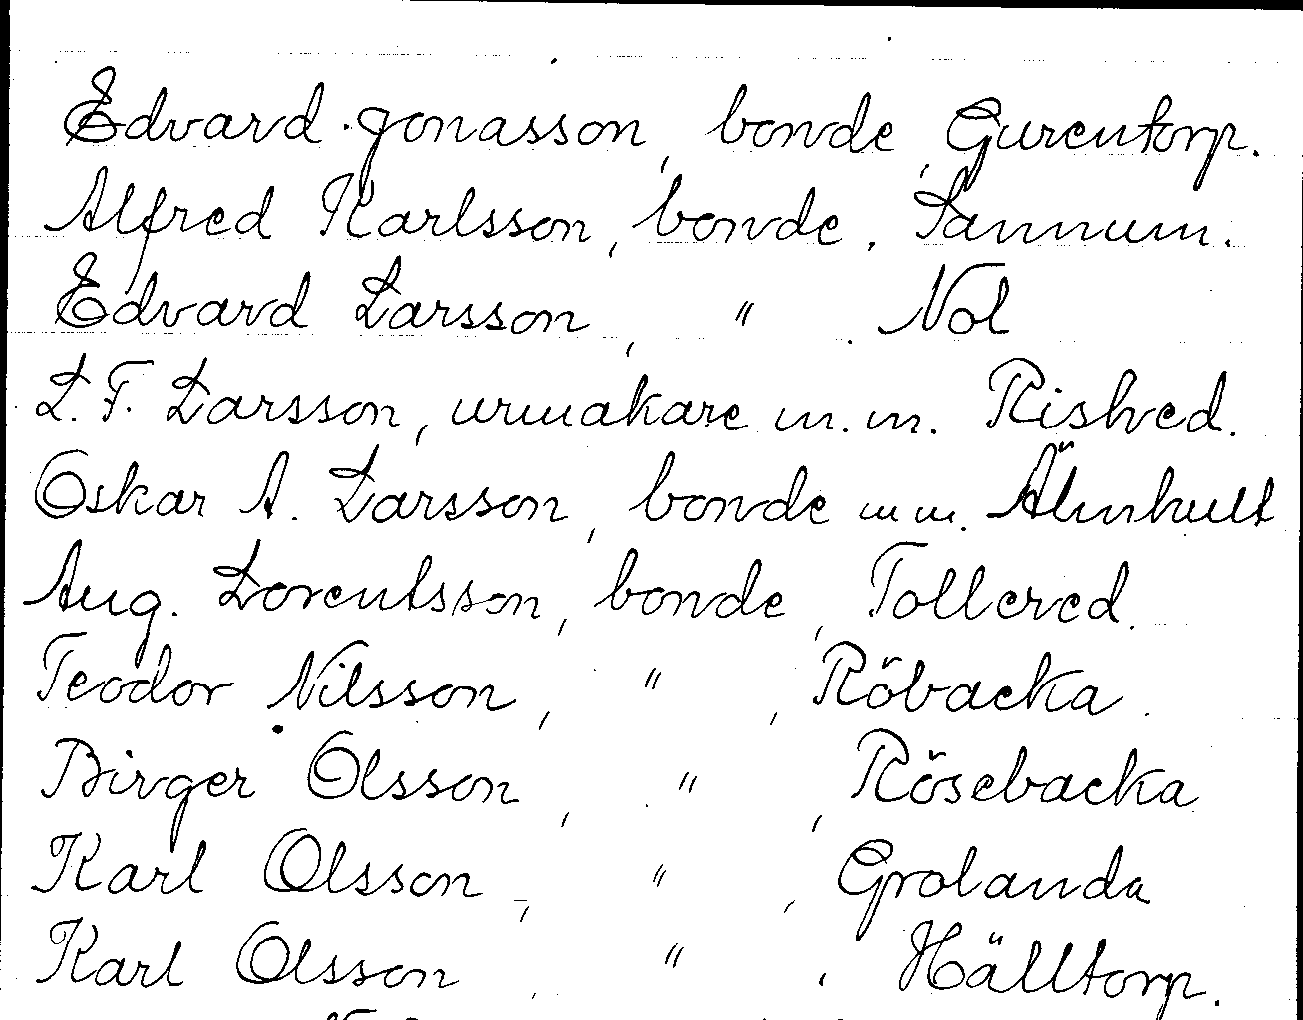 Edvard Jonasson, bonde, Gurentorp.
Alfred Karlsson, bonde, Sannum.
Edvard Larsson, " Nol
L. F. Larsson, urmakare m.m. Rished.
Oskar A. Larsson, bonde m.m. Älmhult
Aug. Lorentsson, bonde, Tollered.
Teodor Nilsson, " , Röbacka.
Birger Olsson, " , Rösebacka
Karl Olsson, " , Grolanda
Karl Olsson, " , Hälltorp.